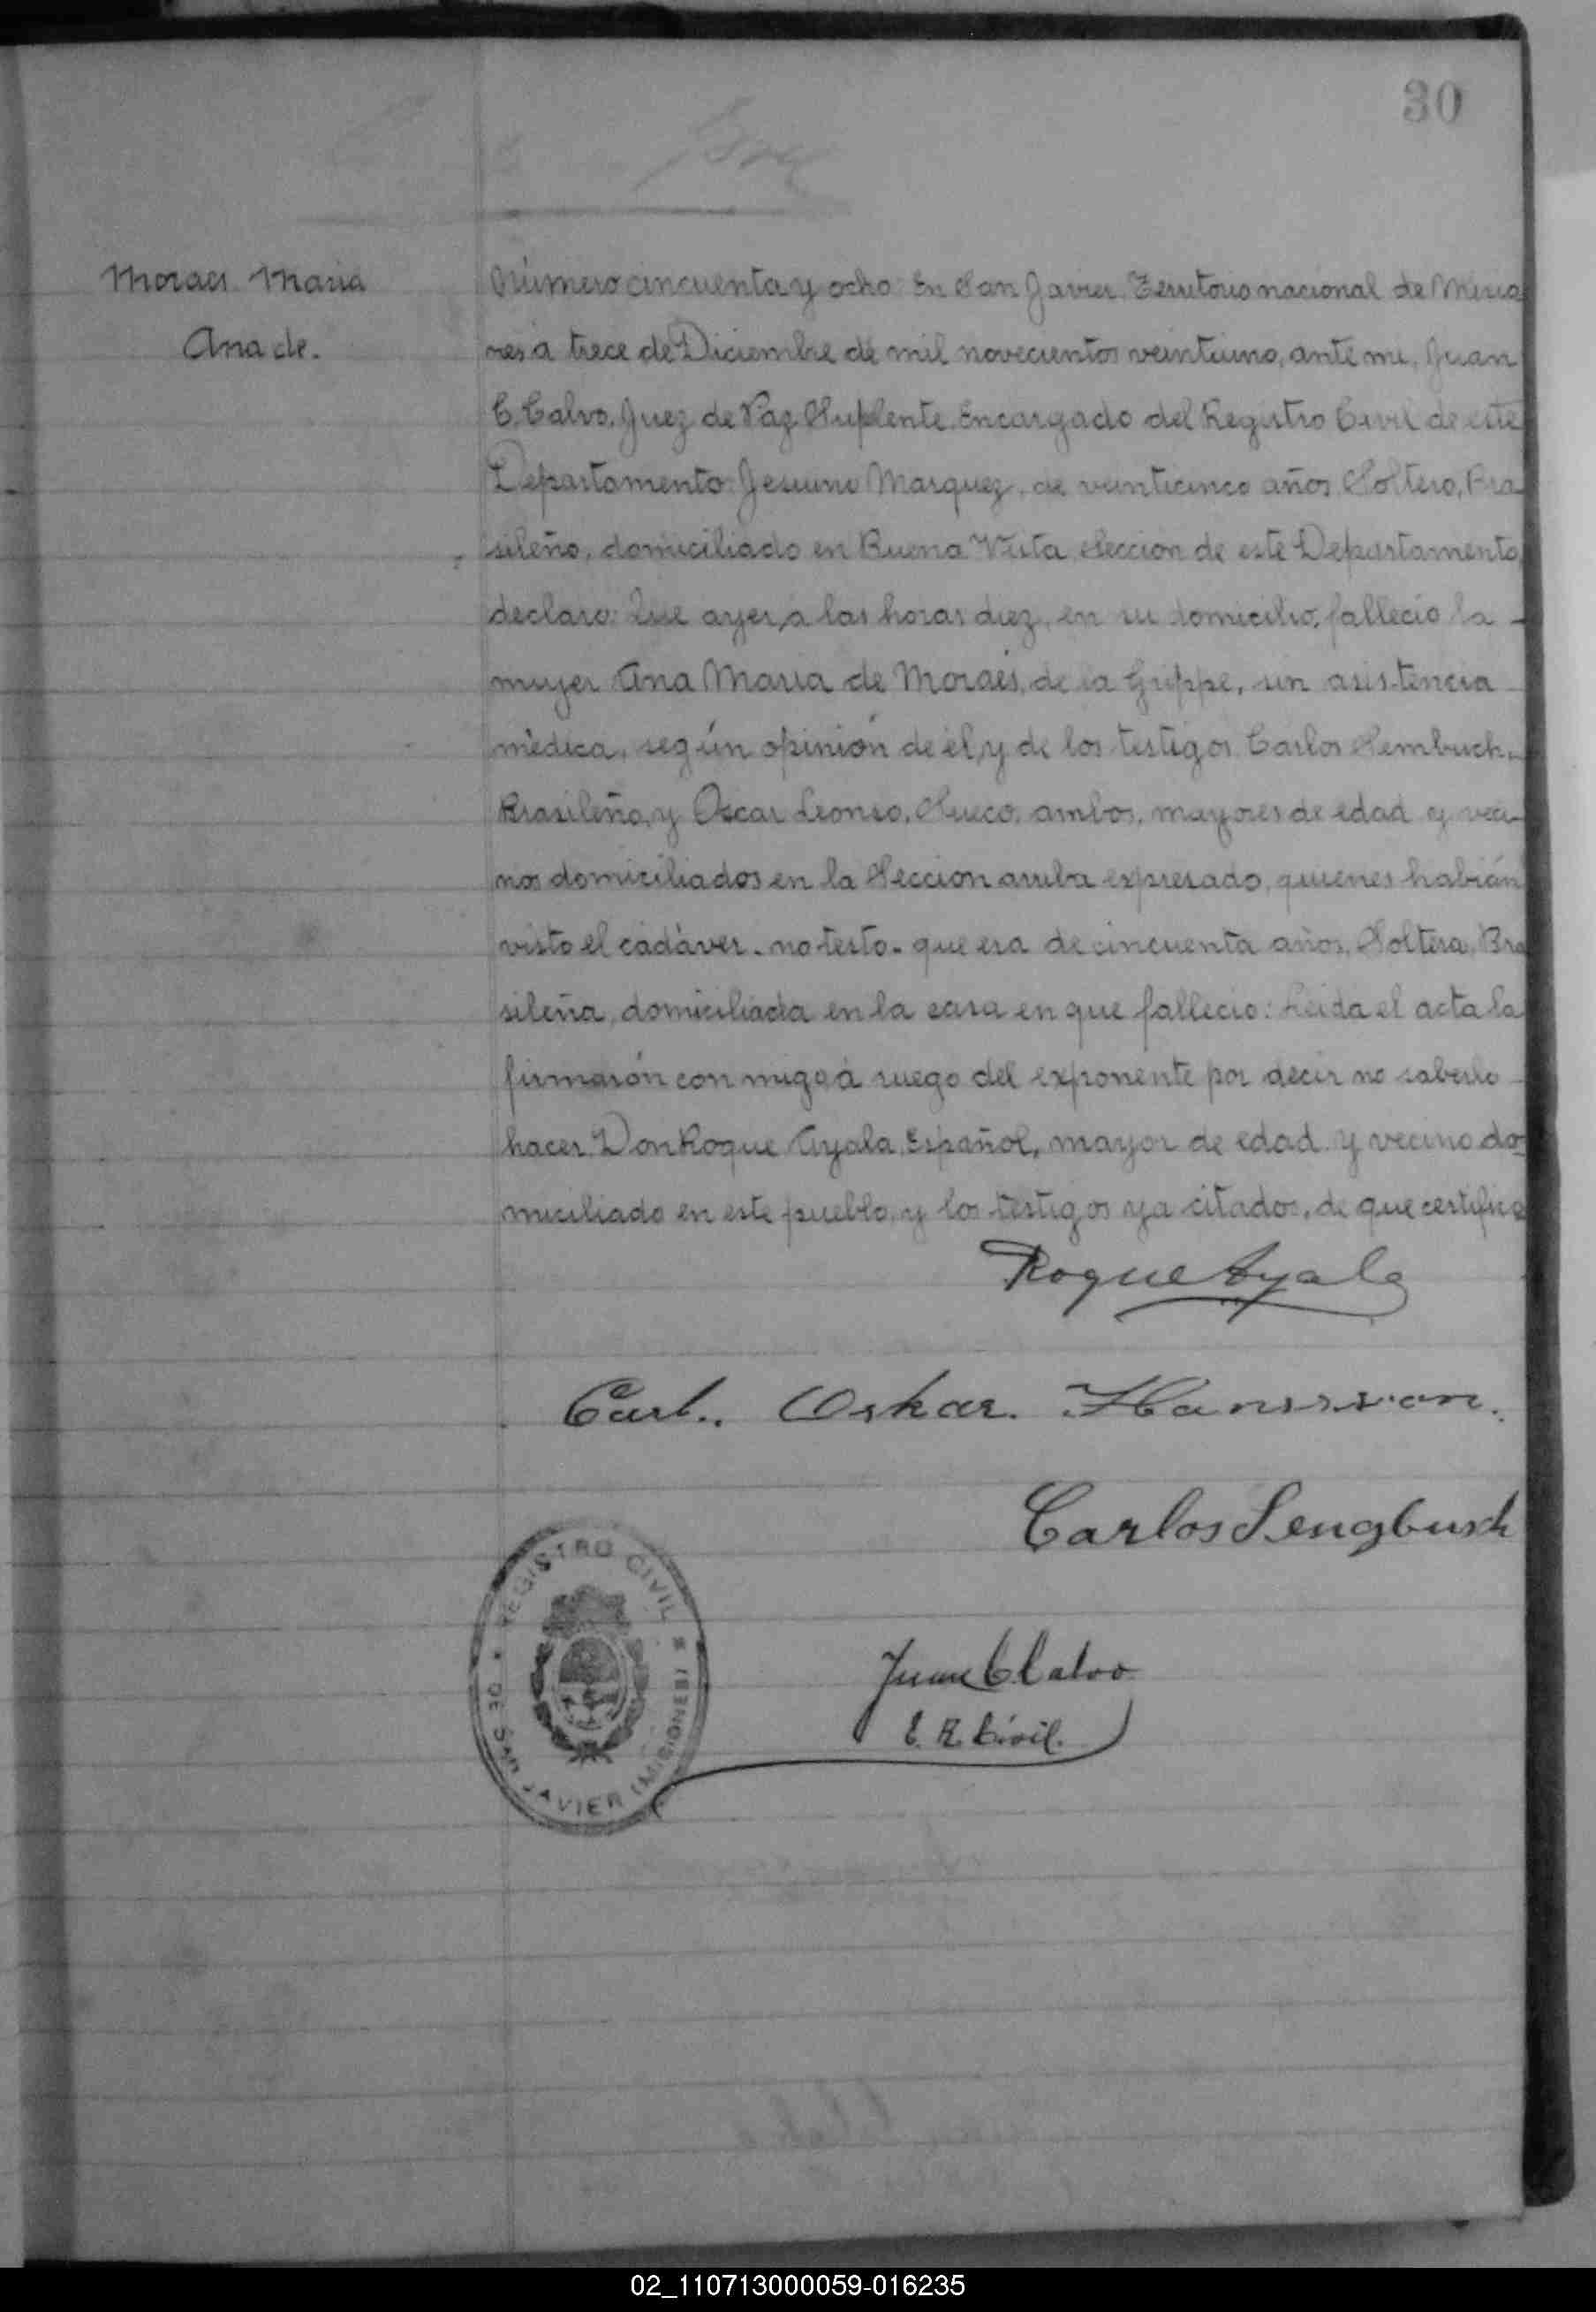 30
Moraes Maria
Ana de.
Número cincuenta y ocho: En San Javier, Territorio nacional de Misio
nes a trece de Diciembre de mil novecientos veintiuno, ante mi, Juan
C. Calvo, Juez de Paz Suplente, Encargado del Registro Civil de este
Departamento: Jesuino Marquez, de veinticinco años, Soltero, Bra
sileño, domiciliado en Buena Vista, Seccion de este Departamento,
declaro: Que ayer, a las horas diez, en su domicilio, fallecio la -
mujer Ana Maria de Moraes, de la Grippe, sin asistencia
mèdica, según opinión de èl, y de los testigos Carlos Sembuch,
Brasileño, y Oscar Leonso, Sueco, ambos, mayores de edad y veci-
nos domiciliados en la Seccion arriba expresado, quienes habián
visto el cadàver. no testo. que era de cincuenta años, Soltera, Bra
sileña, domiciliada en la casa en que fallecio: Leida el acta la
firmarón con migo a ruego del exponente por decir no saberlo
hacer Don Roque Ayala, Español, mayor de edad y vecino do
miciliado en este pueblo, y los testigos ya citados, de que certifico
Roque Ayala
Carl. Oskar. Hansson.
Carlos Sengbusch
Juan C Calvo
E. R. Civil.
REGISTRO CIVIL
DE SAN JAVIER (MISIONES)
02_110713000059-016235